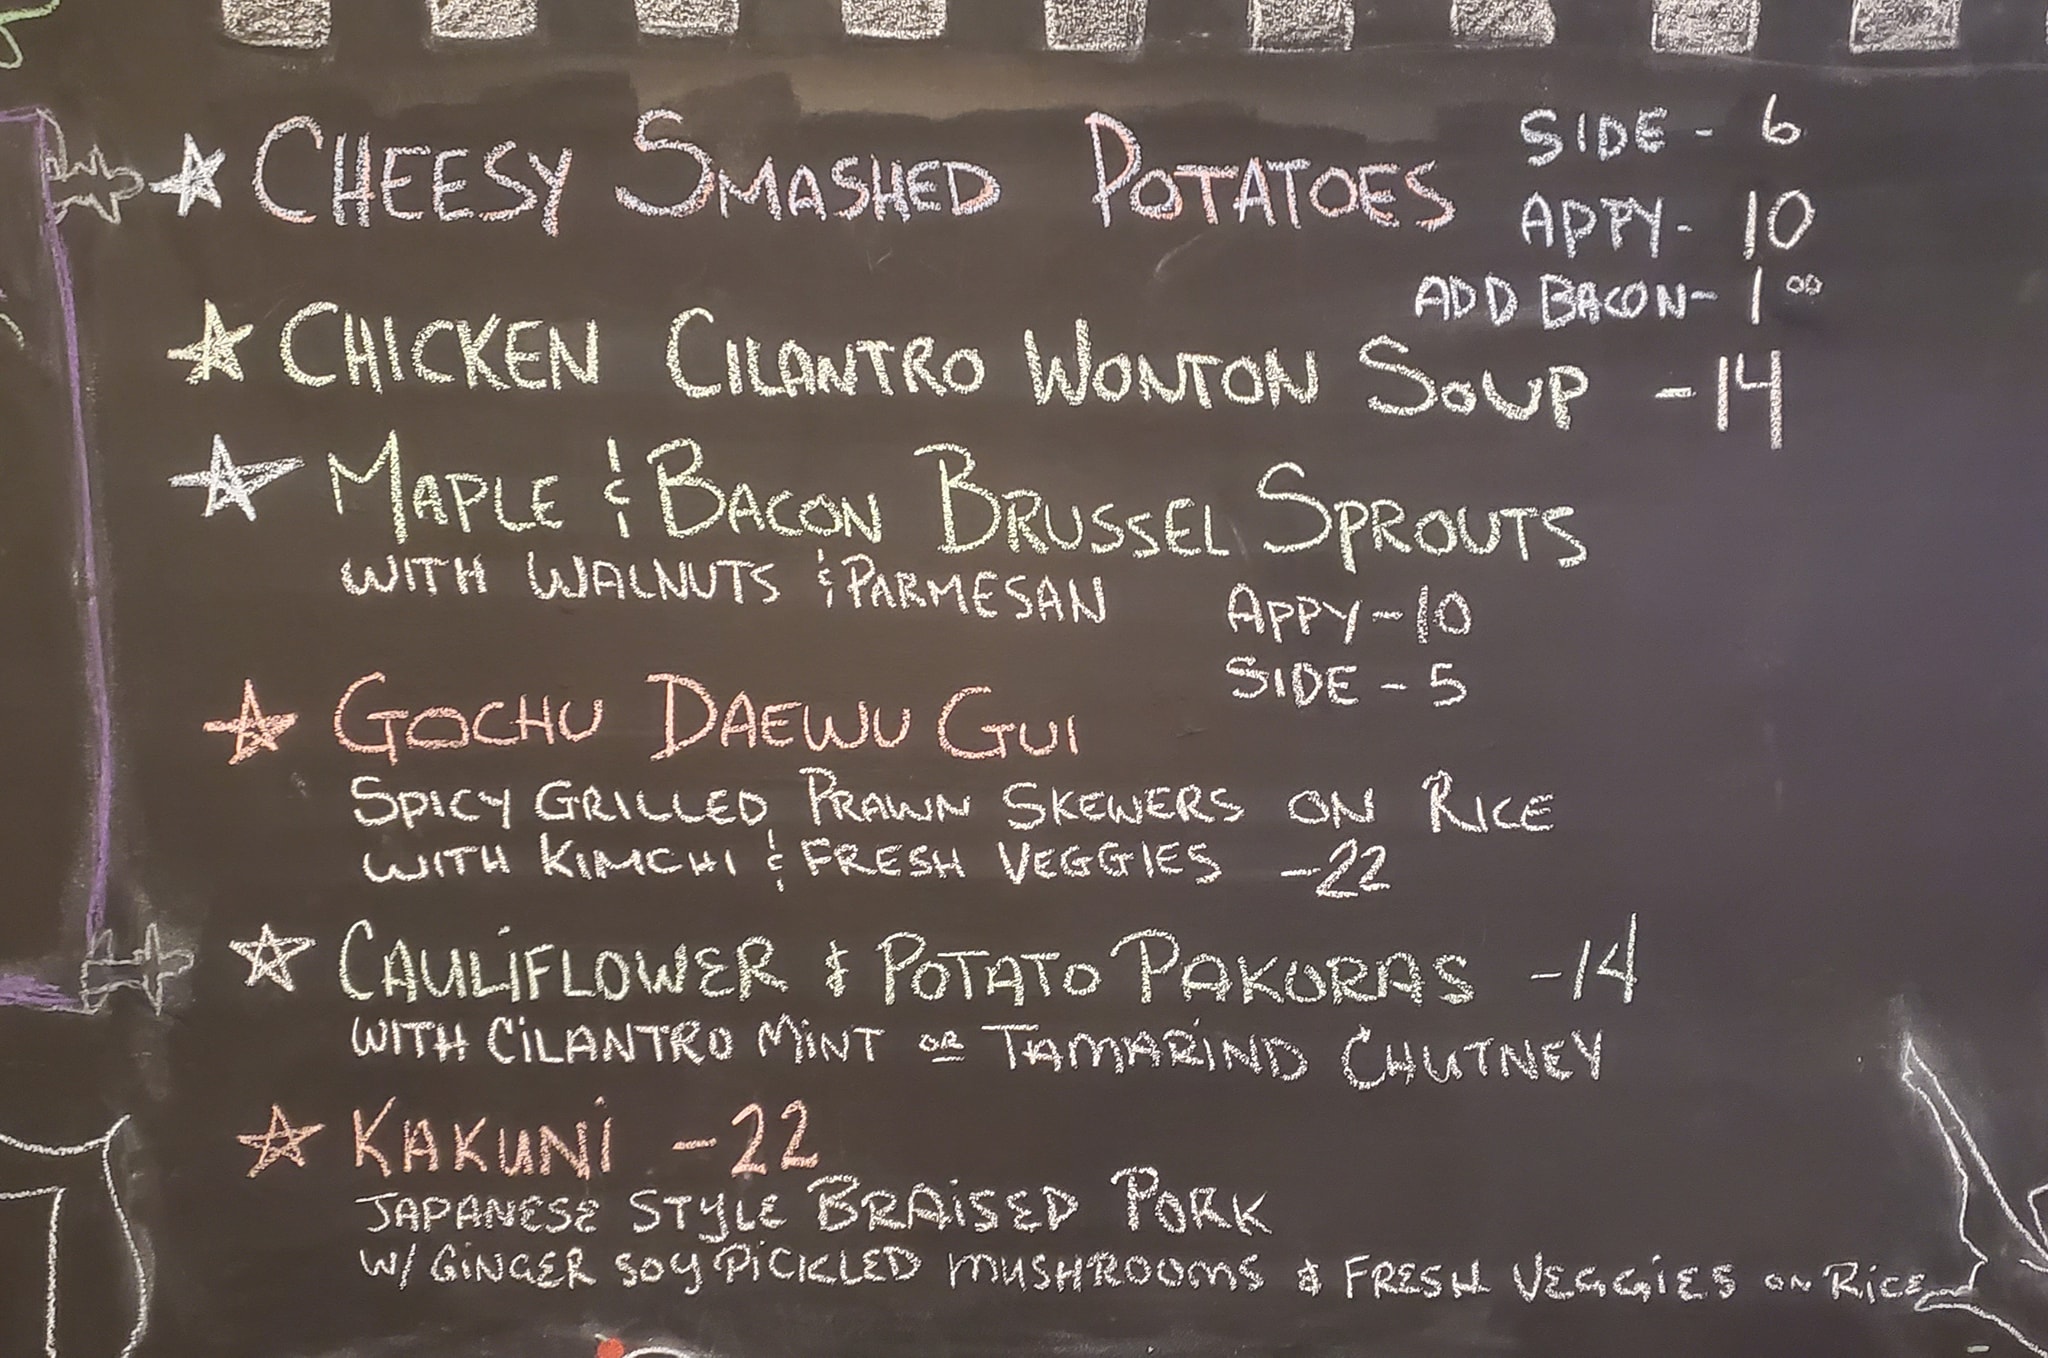 CHEESY SMASHED POTATOES
SIDE - 6
APPY - 10
ADD BACON - 1 00
CHICKEN CILANTRO WONTON SOUP - 14
MAPLE & BACON BRUSSEL SPROUTS
WITH WALNUTS & PARMESAN
APPY - 10
SIDE - 5
GOCHU DAEWU GUI
SPICY GRILLED PRAWN SKEWERS ON RICE
WITH KIMCHI & FRESH VEGGIES - 22
CAULIFLOWER & POTATO PAKORAS - 14
WITH CILANTRO MINT OR TAMARIND CHUTNEY
KAKUNI - 22
JAPANESE STYLE BRAISED PORK
W/ GINGER SOY PICKLED MUSHROOMS & FRESH VEGGIES ON RICE